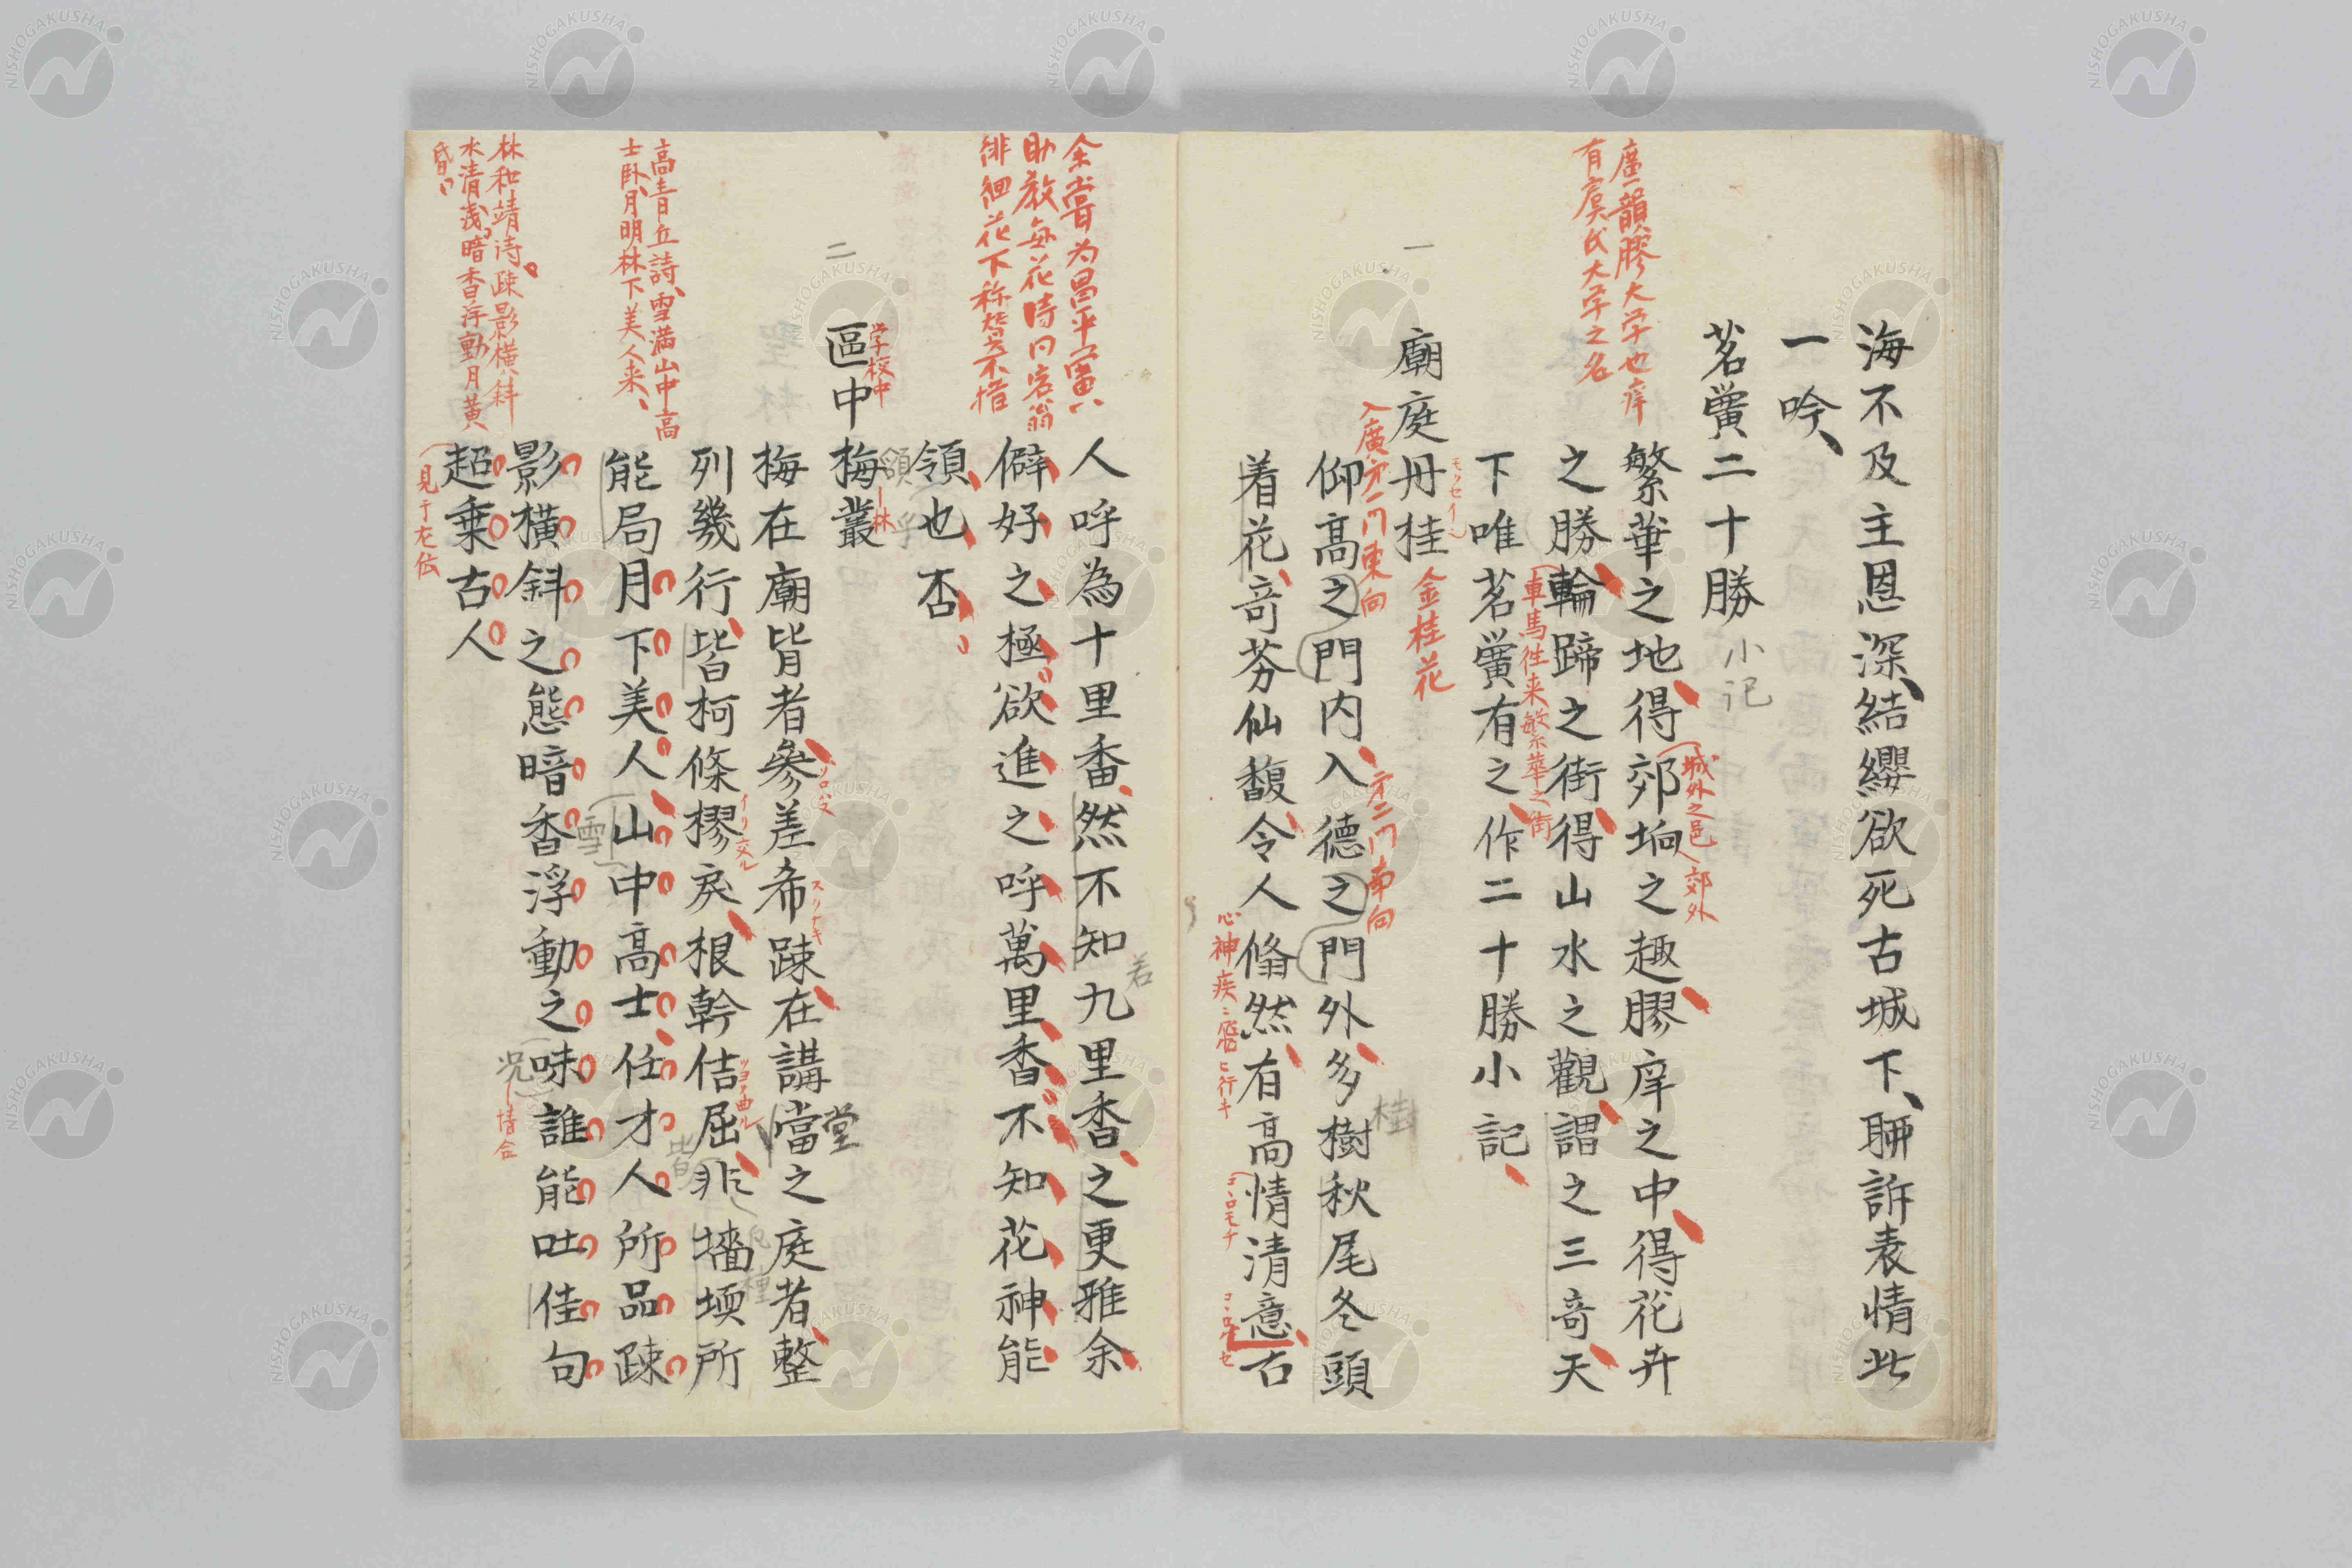 海不及主恩深結纓欲死古城下聊訴表情此
一吟
茗黌二十勝小記
廣韻膠大学也庠
有虞氏大学之名
繁華之地得郊坰之趣膠庠之中得花卉
城外之邑郊外
之勝輪蹄之街得山水之觀謂之三奇天
車馬徃来繁華之街
下唯茗黌有之作二十勝小記
一
廟庭丹桂
モクセイ
金桂花
仰高之門内入德之門外多樹秋尾冬頭
入廣第一門東向
第二門南向
桂
着花奇芬仙馥令人翛然有高情清意古
心神疾
コヽロモチ
人呼為十里香然不知九里香之更雅余
若
余嘗为昌平黌
助教每花時
徘徊花下
僻好之極欲進之呼萬里香不知花神能
領也否
二
區中梅叢
学校中
林
梅在廟背者參差希疎在講當之庭者整
堂
列幾行皆柯條樛戾根幹佶屈非墻堧所
皆
能局月下美人山中高士任才人所品疎
雪
高青丘詩雪満山中高
士卧月明林下美人来
影橫斜之態暗香浮動之味誰能吐佳句
況
情合
林和靖詩疎影橫斜
水清浅暗香浮動月黄
昏
超乗古人
見于左伝
NISHOGAKUSHA